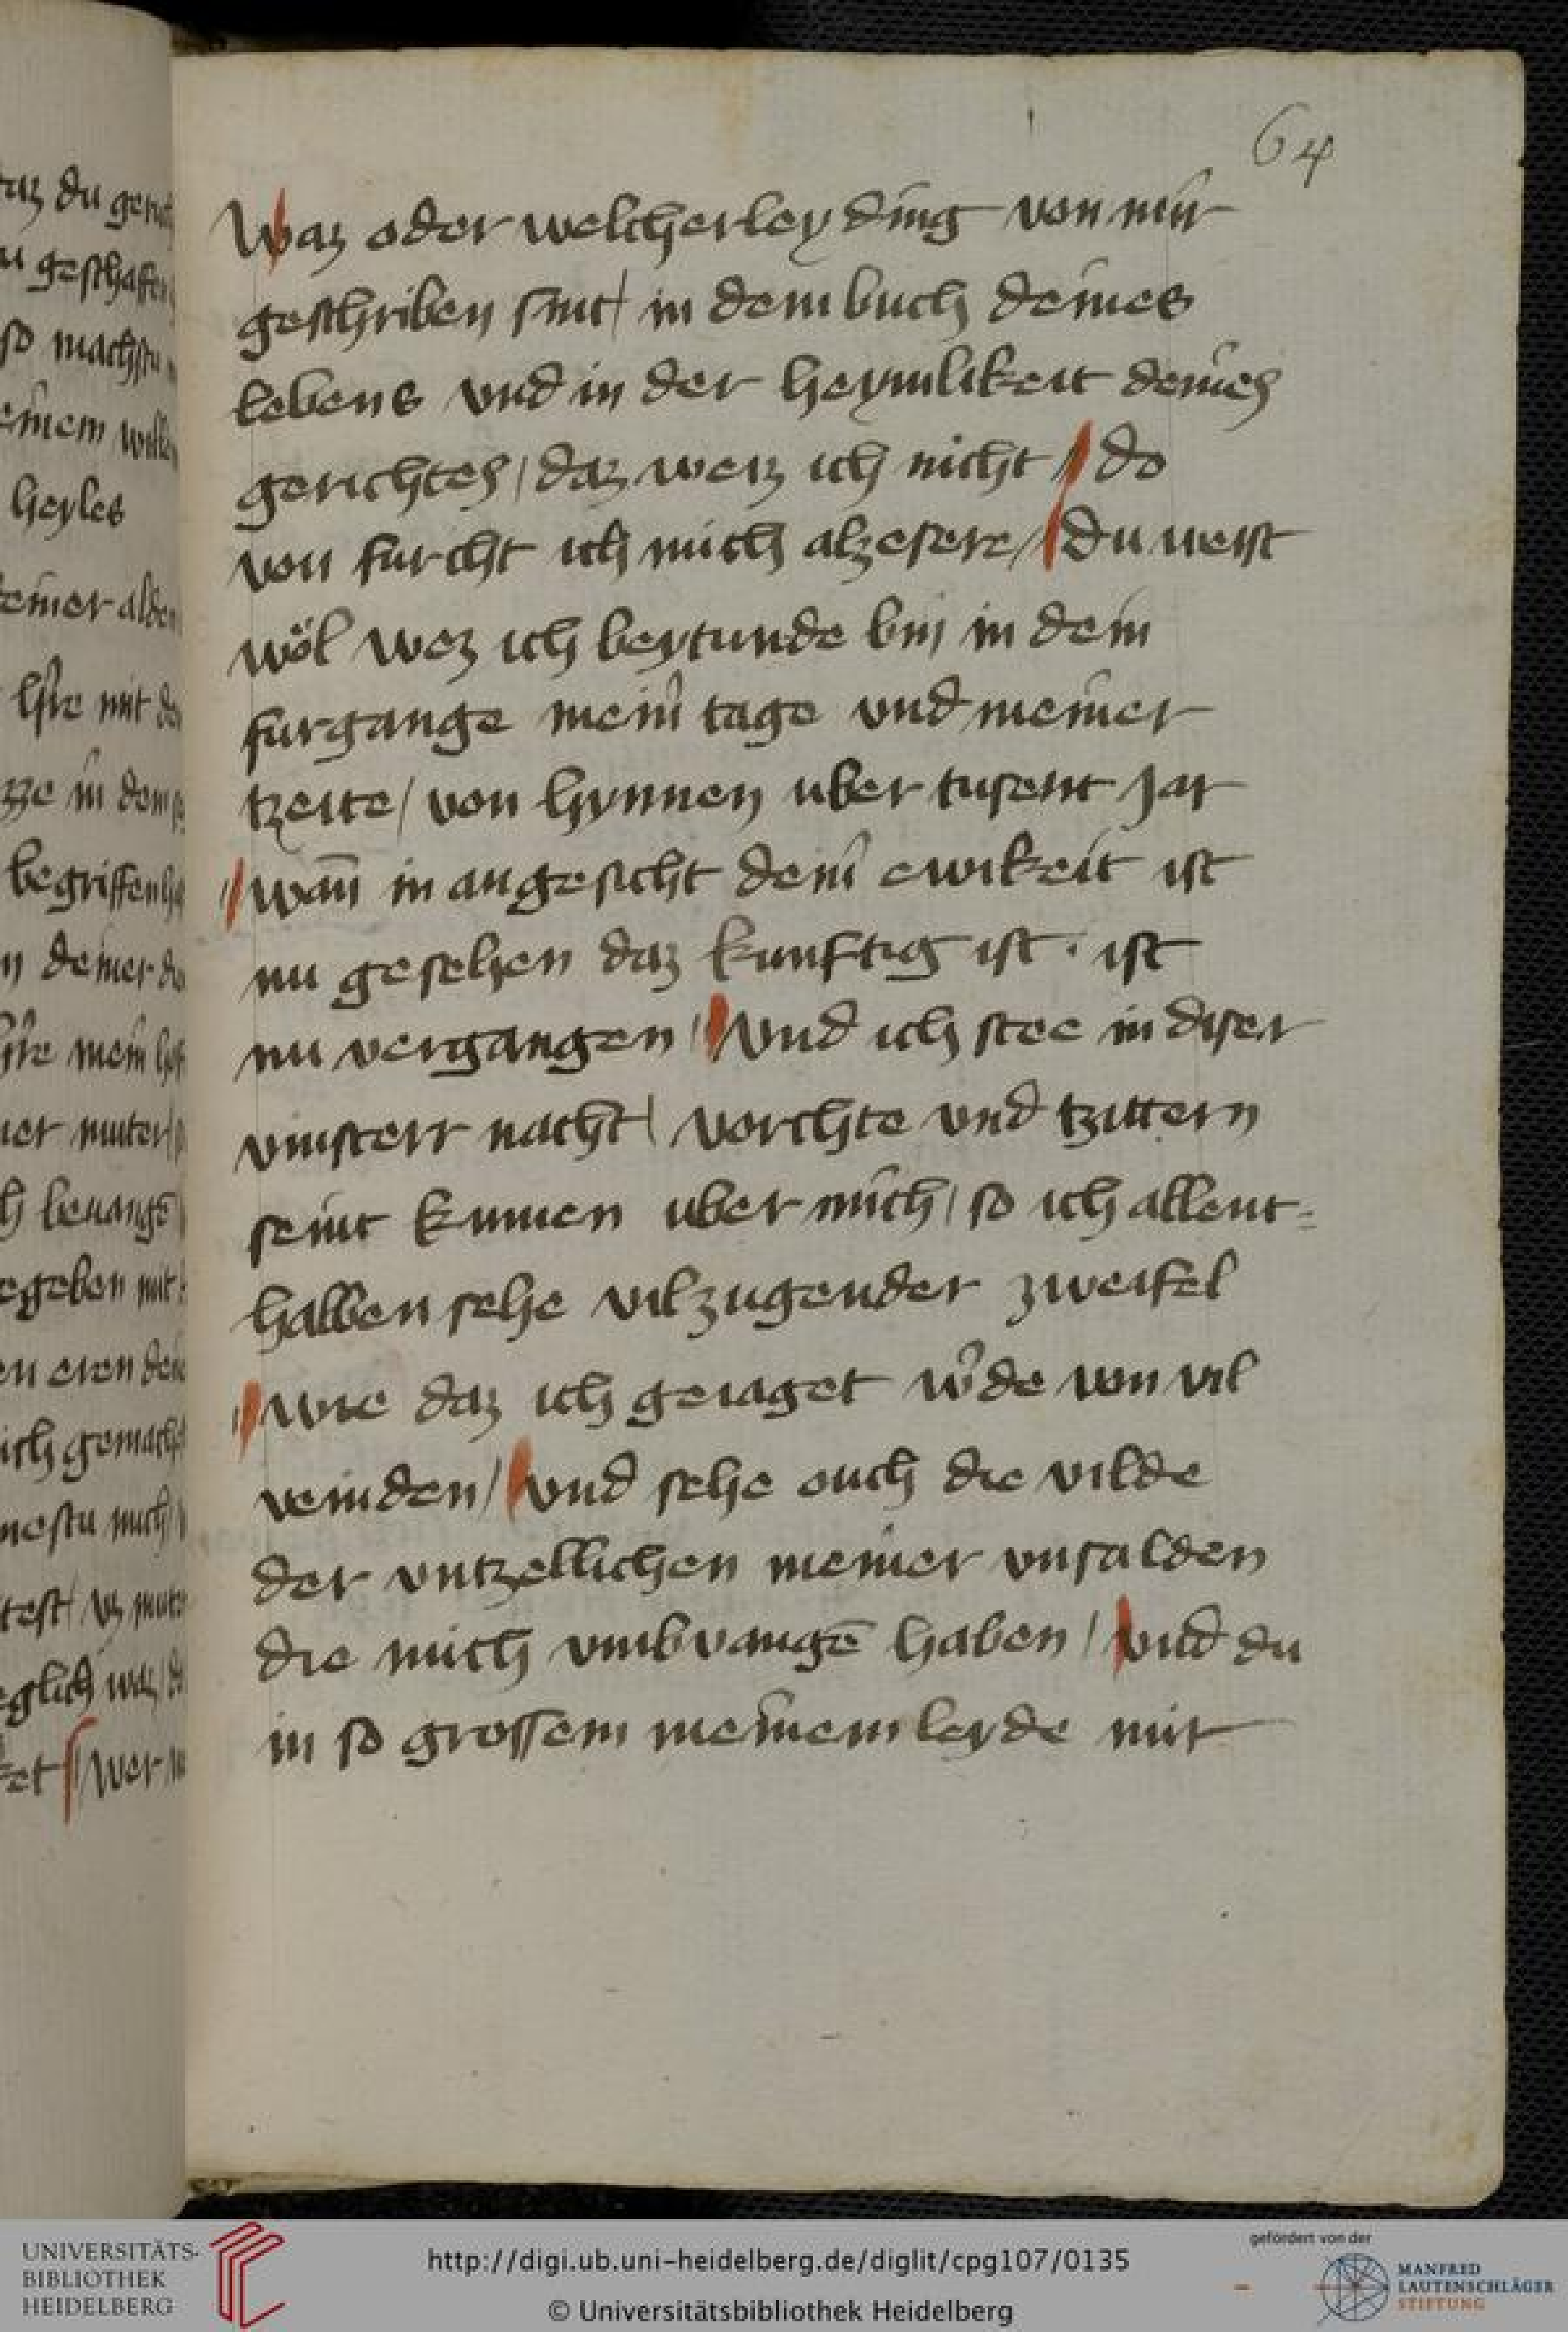 64
Waz oder welcherley ding von mir
geschriben sint / in dem buch deines
lebens vnd in der heymlikeit deines
gerichtes / daz weiz ich nicht / do
von furcht ich mich alzesere / Du weist
wöl wez ich beytunde bin in dem
furgange mein̄ tage vnd meiner
tzeite / von hynnen uber tusent Jar
// wan̄ in angesicht dein̄ ewikeit ist
nu gesehen daz kunftig ist · ist
nu vergangen // Vnd ich stee in diser
vinsterr nacht / vorchte vnd tzittern
seint kumen uber mich / so ich allent-
halben sehe vilzugender zweifel
// Wie daz ich geiaget w̄de von vil
veinden / vnd sehe ouch die vilde
der vntzellichen meiner vnsalden
die mich vmbvangē haben / vnd du
in so grossem meinem leyde mir
az du
u geschaffen
so machstu
einem wille
heyles
einer alden
mit
in dem
begriffen
n deiner
mein
er muter
h beuangē
egeben mit
ich gemacht
mich
glich waz
et / Wer
UNIVERSITÄTS-
BIBLIOTHEK
HEIDELBERG
http://digi.ub.uni-heidelberg.de/diglit/cpg107/0135
© Universitätsbibliothek Heidelberg
gefördert von der
MANFRED
LAUTENSCHLÄGER
STIFTUNG